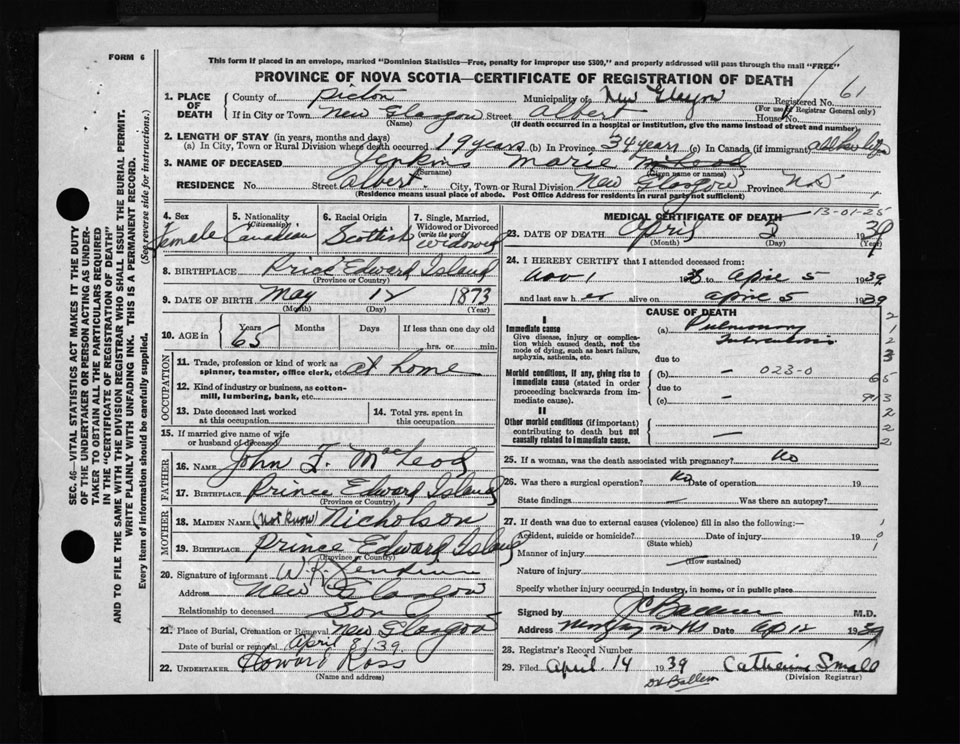 FORM 6
This form if placed in an envelope, marked "Dominion Statistics—Free, penalty for improper use $300," and properly addressed will pass through the mail "FREE"
PROVINCE OF NOVA SCOTIA—CERTIFICATE OF REGISTRATION OF DEATH
1. PLACE OF DEATH
County of Pictou Municipality of New Glasgow Registered No. 61
(For use of Registrar General only)
If in City or Town New Glasgow Street Albert House No.
(Name) (If death occurred in a hospital or institution, give the name instead of street and number)
2. LENGTH OF STAY (in years, months and days)
(a) In City, Town or Rural Division where death occurred 19 years (b) In Province 34 years (c) In Canada (if immigrant) all her life
3. NAME OF DECEASED Jenkins Marie McLeod
(Surname) (Given name or names)
RESIDENCE No. Street Albert. City, Town or Rural Division New Glasgow Province N.S.
(Residence means usual place of abode. Post Office Address for residents in rural parts not sufficient)
4. Sex Female
5. Nationality (Citizenship) Canadian
6. Racial Origin Scottish
7. Single, Married, Widowed or Divorced (write the word) widowed
8. BIRTHPLACE Price Edward Island
(Province or Country)
9. DATE OF BIRTH May 12 1873
(Month) (Day) (Year)
10. AGE in Years 65 Months Days If less than one day
hrs. or min.
11. Trade, profession or kind of work as spinner, teamster, office clerk, etc. at home
12. Kind of industry or business, as cotton-mill, lumbering, bank, etc.
13. Date deceased last worked at this occupation
14. Total yrs. spent in this occupation
15. If married give name of wife or husband of deceased
FATHER
16. NAME John F. MacLeod
17. BIRTHPLACE Prince Edward Island
(Province or Country)
MOTHER
18. MAIDEN NAME (Not Know) Nicholson
19. BIRTHPLACE Prince Edward Island
(Province or Country)
20. Signature of informant W.R. Jenkins
Address New Glasgow
Relationship to deceased Son
21. Place of Burial, Cremation or Removal New Glasgow
Date of burial or removal April /39.
22. UNDERTAKER Howard Ross
(Name and address)
MEDICAL CERTIFICATE OF DEATH 13-01-25
23. DATE OF DEATH April 1939
(Month) (Day) (Year)
24. I HEREBY CERTIFY that I attended deceased from:
Nov 1 19 to April 5 1939
and last saw her alive on April 5 1939
CAUSE OF DEATH
I
Immediate cause
Give disease, injury or complication which caused death, not the mode of dying, such as heart failure, asphyxia, asthenia, etc.
(a) Pulmonary Tuberculosis
due to
Morbid conditions, if any, giving rise to immediate cause (stated in order proceeding backwards from immediate cause).
(b) — 023-0
due to
(c) —
II
Other morbid conditions (if important) contributing to death but not causally related to immediate cause.
—
25. If a woman, was the death associated with pregnancy? No
26. Was there a surgical operation? No Date of operation 19
State findings — Was there an autopsy?
27. If death was due to external causes (violence) fill in also the following:—
Accident, suicide or homicide? Date of injury 19
(State which)
Manner of injury
(How sustained)
Nature of injury
Specify whether injury occurred in industry, in home, or in public place
Signed by J C Ballem M.D.
Address New Glasgow NS Date Ap 12 1939
28. Registrar's Record Number
29. Filed April. 14 1939 Catherine Small
(Division Registrar)
Dr Ballem
SEC. 46—VITAL STATISTICS ACT MAKES IT THE DUTY
OF THE UNDERTAKER OR PERSON ACTING AS UNDERTAKER TO OBTAIN ALL THE PARTICULARS REQUIRED
IN THE "CERTIFICATE OF REGISTRATION OF DEATH"
AND TO FILE THE SAME WITH THE DIVISION REGISTRAR WHO SHALL ISSUE THE BURIAL PERMIT.
WRITE PLAINLY WITH UNFADING INK. THIS IS A PERMANENT RECORD.
Every item of information should be carefully supplied. (See reverse side for instructions.)